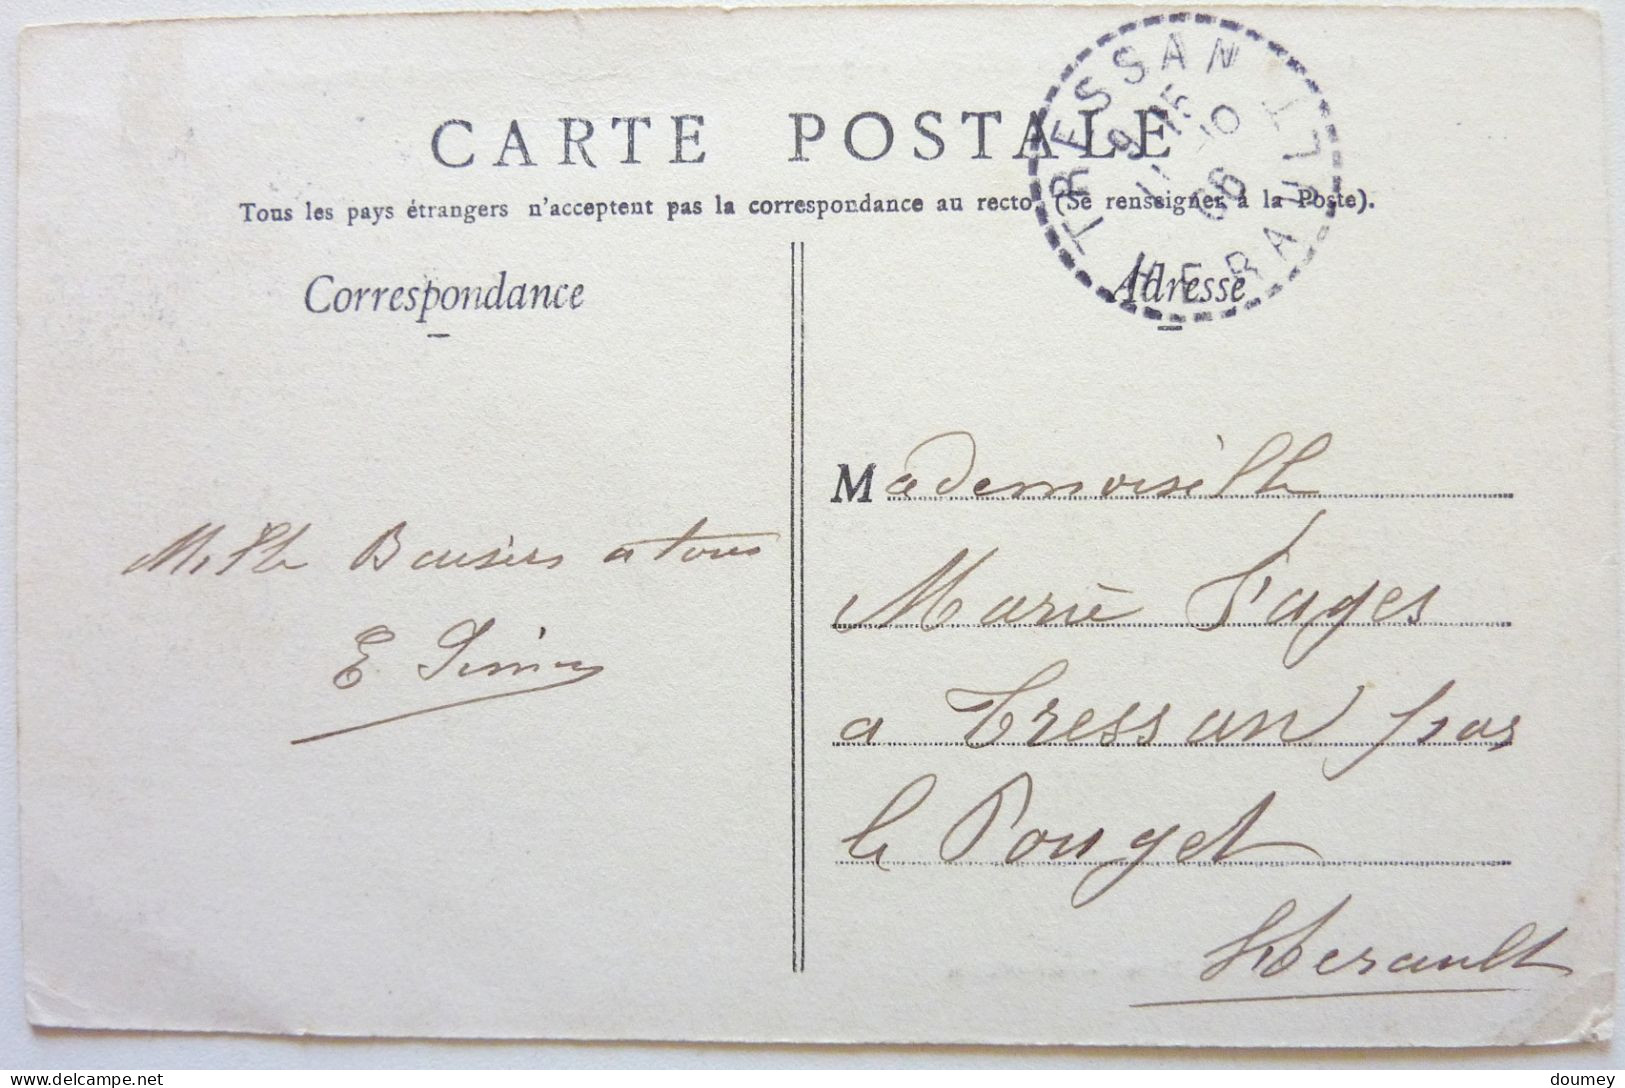 CARTE POSTALE
Tous les pays étrangers n'acceptent pas la correspondance au recto (Se renseigner à la Poste).
Correspondance
Adresse
TRESSAN
HERAULT
Mille Baisers a tous
E.
Mademoiselle
Marie Fages
a Tressan par
le Pouget
Herault
delcampe.net
doumey